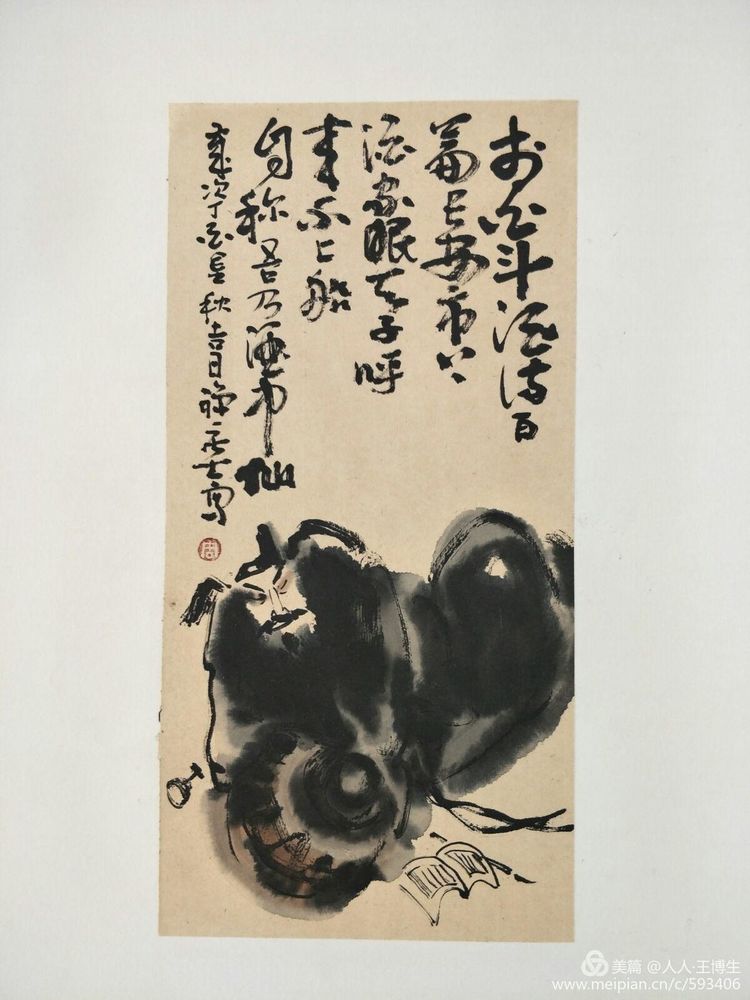 李白斗酒诗百
篇长安市上
酒家眠天子呼
来不上船
自称吾乃酒中仙
岁次丁酉秋吉日禅居士写
美篇 @人人·王博生
www.meipian.cn/c/593406